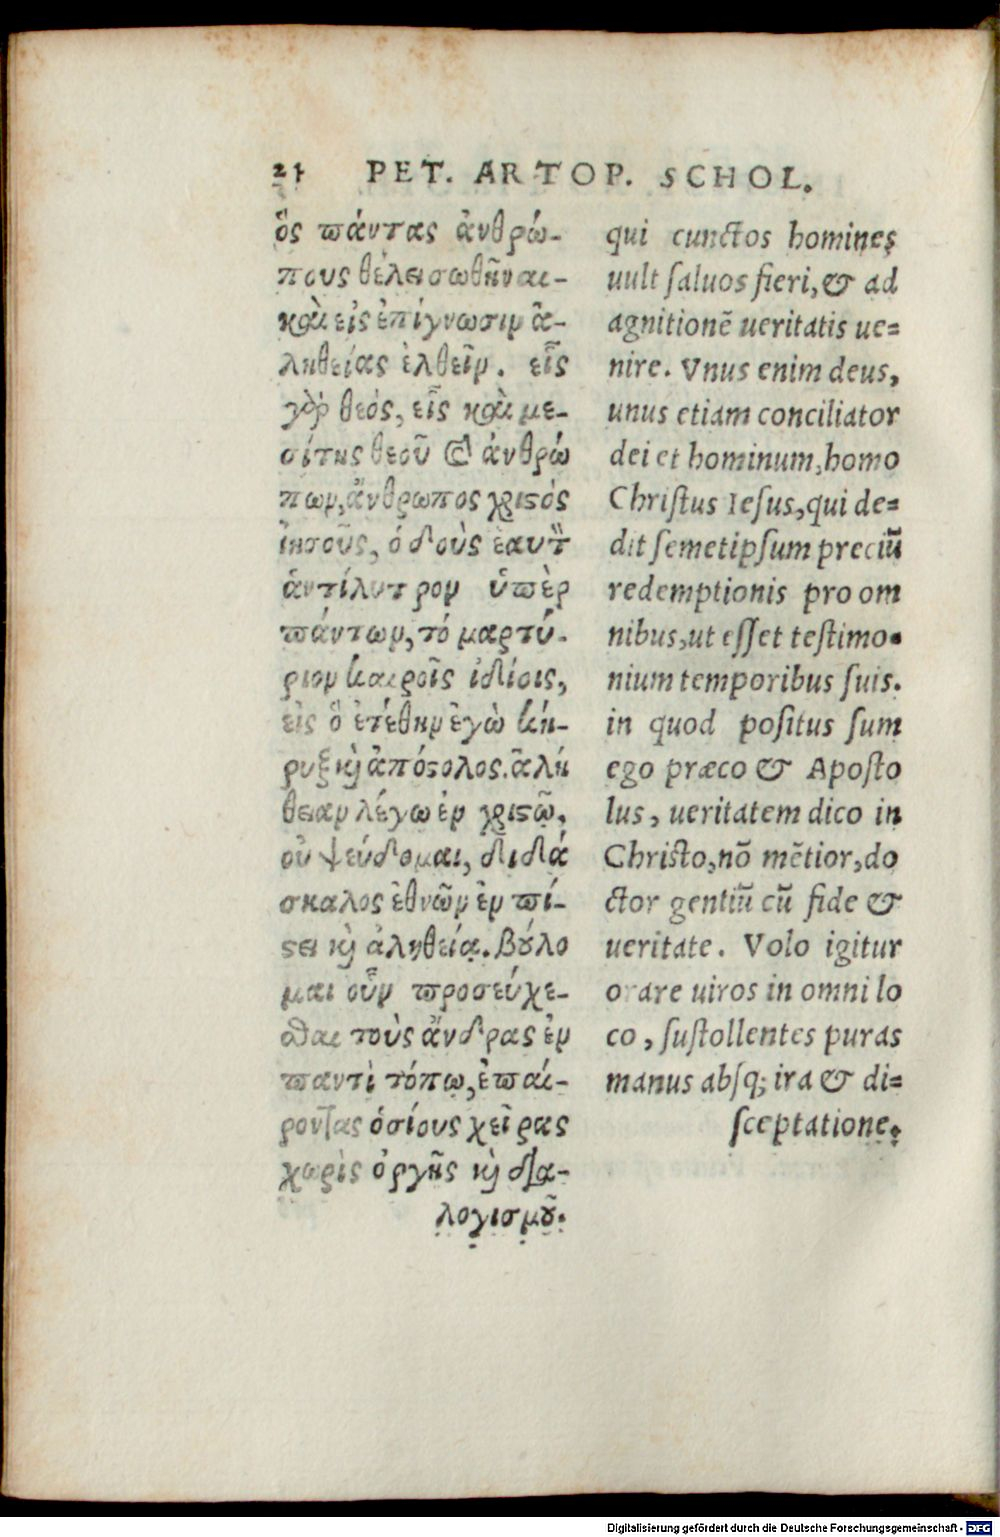 21 PET. ARTOP. SCHOL.
ὃς πάντας ἀνθρώ-
πους θέλει σωθῆναι-
καὶ εἰς ἐπίγνωσιν ἀ-
ληθείας ἐλθεῖν. εἷς
γὰρ θεός, εἷς καὶ με-
σίτης θεοῦ καὶ ἀνθρώ
πων, ἄνθρωπος χριστός
ἰησοῦς, ὁ δοὺς ἑαυτὸν
ἀντίλυτρον ὑπὲρ
πάντων, τό μαρτύ-
ριον καιροῖς ἰδίοις,
εἰς ὃ ἐτέθην ἐγὼ κή-
ρυξ καὶ ἀπόστολος. ἀλή
θειαν λέγω ἐν χριστῷ,
οὐ ψεύδομαι, διδά
σκαλος ἐθνῶν ἐν πί-
στει καὶ ἀληθείᾳ. βούλο
μαι οὖν προσεύχε-
σθαι τοὺς ἄνδρας ἐν
παντὶ τόπῳ, ἐπαί-
ροντας ὁσίους χεῖρας
χωρὶς ὀργῆς καὶ δια-
λογισμοῦ.
qui cunctos homines
uult ſaluos fieri, & ad
agnitionē ueritatis ue=
nire. Vnus enim deus,
unus etiam conciliator
dei et hominum, homo
Chriſtus Ieſus, qui de=
dit ſemetipſum preciū
redemptionis pro om
nibus, ut eſſet teſtimo=
nium temporibus ſuis.
in quod poſitus ſum
ego præco & Apoſto
lus, ueritatem dico in
Chriſto, nō mētior, do
ctor gentiū cū fide &
ueritate. Volo igitur
orare uiros in omni lo
co, ſuſtollentes puras
manus abſq; ira & di=
ſceptatione.
Digitalisierung gefördert durch die Deutsche Forschungsgemeinschaft - DFG